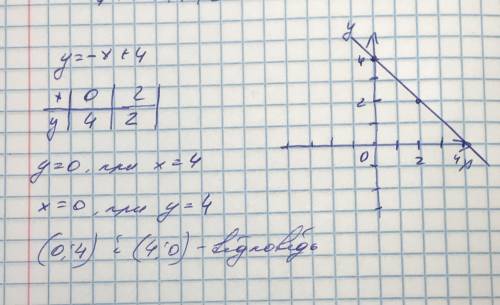 y=-x+4
x | 0 | 2
y | 4 | 2
y=0, при x=4
x=0, при y=4
(0;4) і (4;0) - відповідь
y
4
2
0 2 4 x